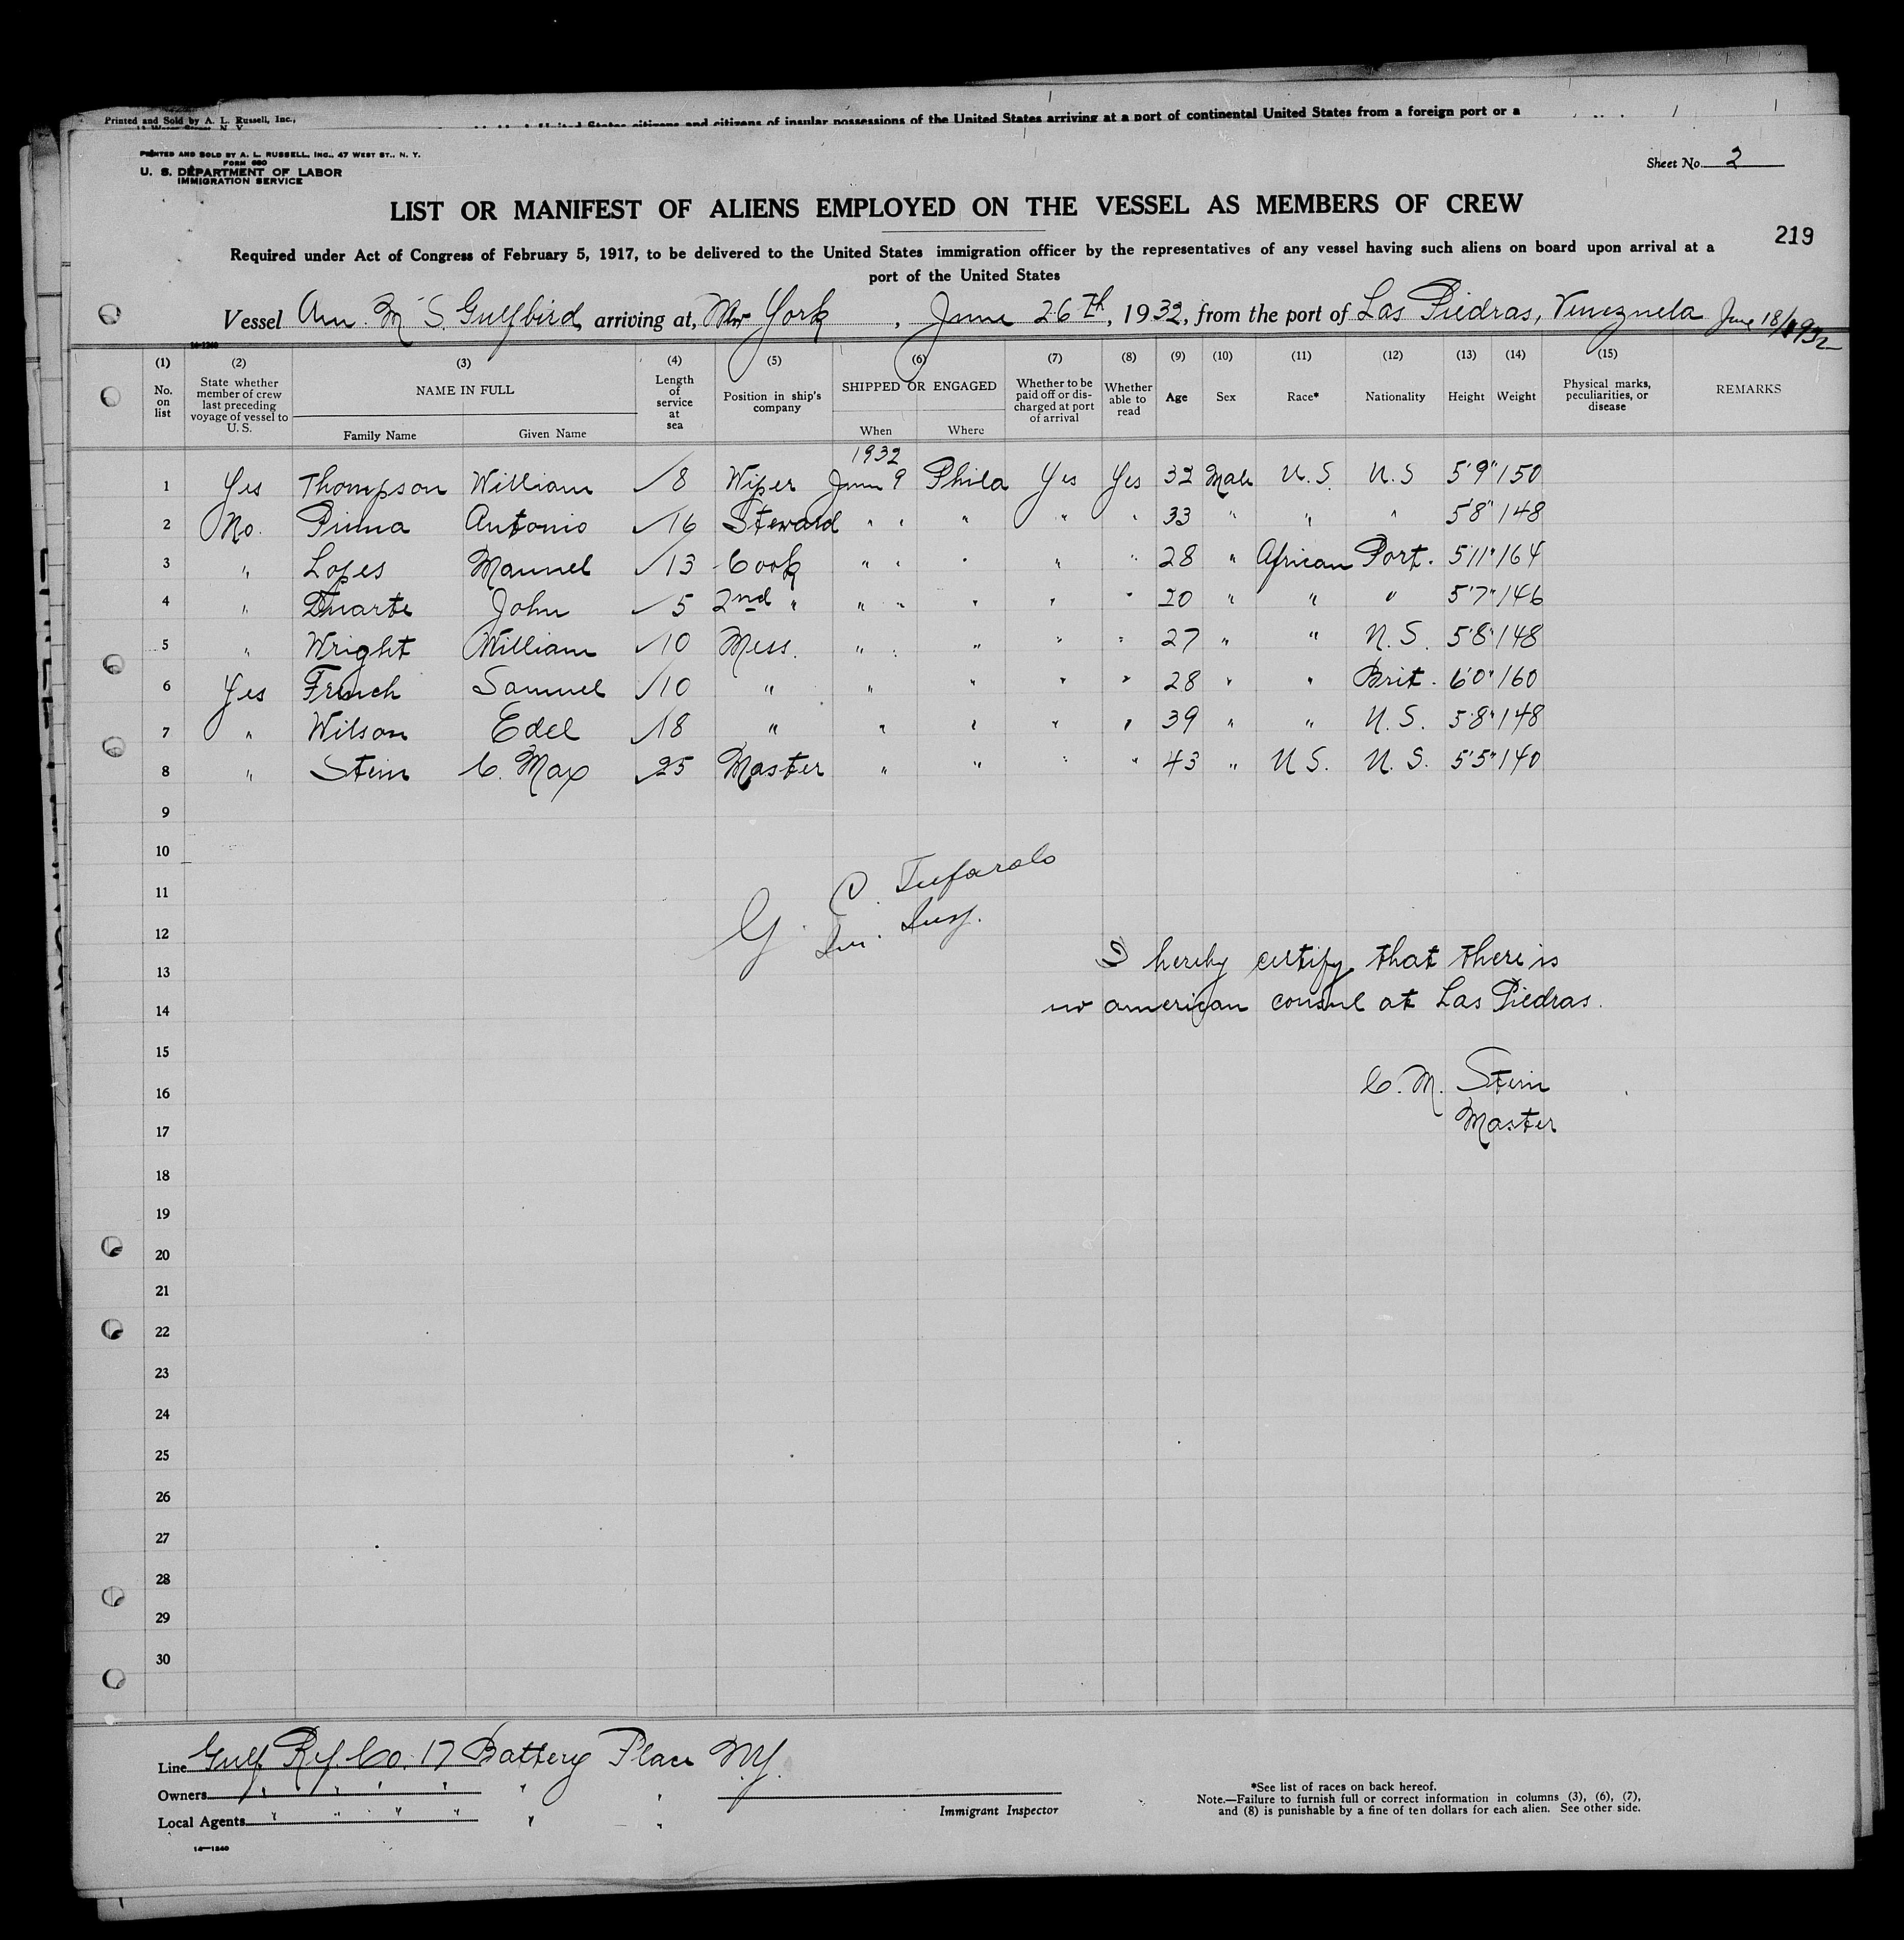 Printed and Sold by A. L. Russell, Inc.,
United States citizens and citizens of insular possessions of the United States arriving at a port of continental United States from a foreign port or a
PRINTED AND SOLD BY A. L. RUSSELL, INC., 47 WEST ST., N. Y.
FORM 680
U. S. DEPARTMENT OF LABOR
IMMIGRATION SERVICE
Sheet No. 2
LIST OR MANIFEST OF ALIENS EMPLOYED ON THE VESSEL AS MEMBERS OF CREW
219
Required under Act of Congress of February 5, 1917, to be delivered to the United States immigration officer by the representatives of any vessel having such aliens on board upon arrival at a
port of the United States
Vessel Am. M S. Gulfbird, arriving at, New York, June 26th, 1932, from the port of Las Piedras, Venezuela June 18/1932
14-1240
(1) (2) (3) (4) (5) (6) (7) (8) (9) (10) (11) (12) (13) (14) (15)
No. on list
State whether member of crew last preceding voyage of vessel to U. S.
NAME IN FULL
Family Name Given Name
Length of service at sea
Position in ship's company
SHIPPED OR ENGAGED
When Where
Whether to be paid off or discharged at port of arrival
Whether able to read
Age
Sex
Race*
Nationality
Height
Weight
Physical marks, peculiarities, or disease
REMARKS
1932
1 Yes Thompson William ✓8 Wiper June 9 Phila Yes Yes 32 Male U.S. U.S 5'9" 150
2 No. Pinna Antonio ✓16 Steward " " " " " 33 " " " 5'8" 148
3 " Lopes Manuel ✓13 Cook " " " " " 28 " African Port. 5'11" 164
4 " Duarte John ✓5 2nd " " " " " " 20 " " " 5'7" 146
5 " Wright William ✓10 Mess. " " " " " 27 " " U.S. 5'8" 148
6 Yes French Samuel ✓10 " " " " " 28 " " Brit. 6'0" 160
7 " Wilson Edel ✓18 " " " " " 39 " " U.S. 5'8" 148
8 " Stein C. Max ✓25 Master " " " " 43 " U.S. U.S. 5'5" 140
9
10
11
12
13
14
15
16
17
18
19
20
21
22
23
24
25
26
27
28
29
30
G. C. Tufarolo
Im. Insp.
I hereby certify that there is
no american consul at Las Piedras.
C. M. Stein
Master
Line Gulf Ref. Co. 17 Battery Place N.Y.
Owners " " " " " "
Local Agents " " " " " "
Immigrant Inspector
*See list of races on back hereof.
Note.—Failure to furnish full or correct information in columns (3), (6), (7),
and (8) is punishable by a fine of ten dollars for each alien. See other side.
14—1240